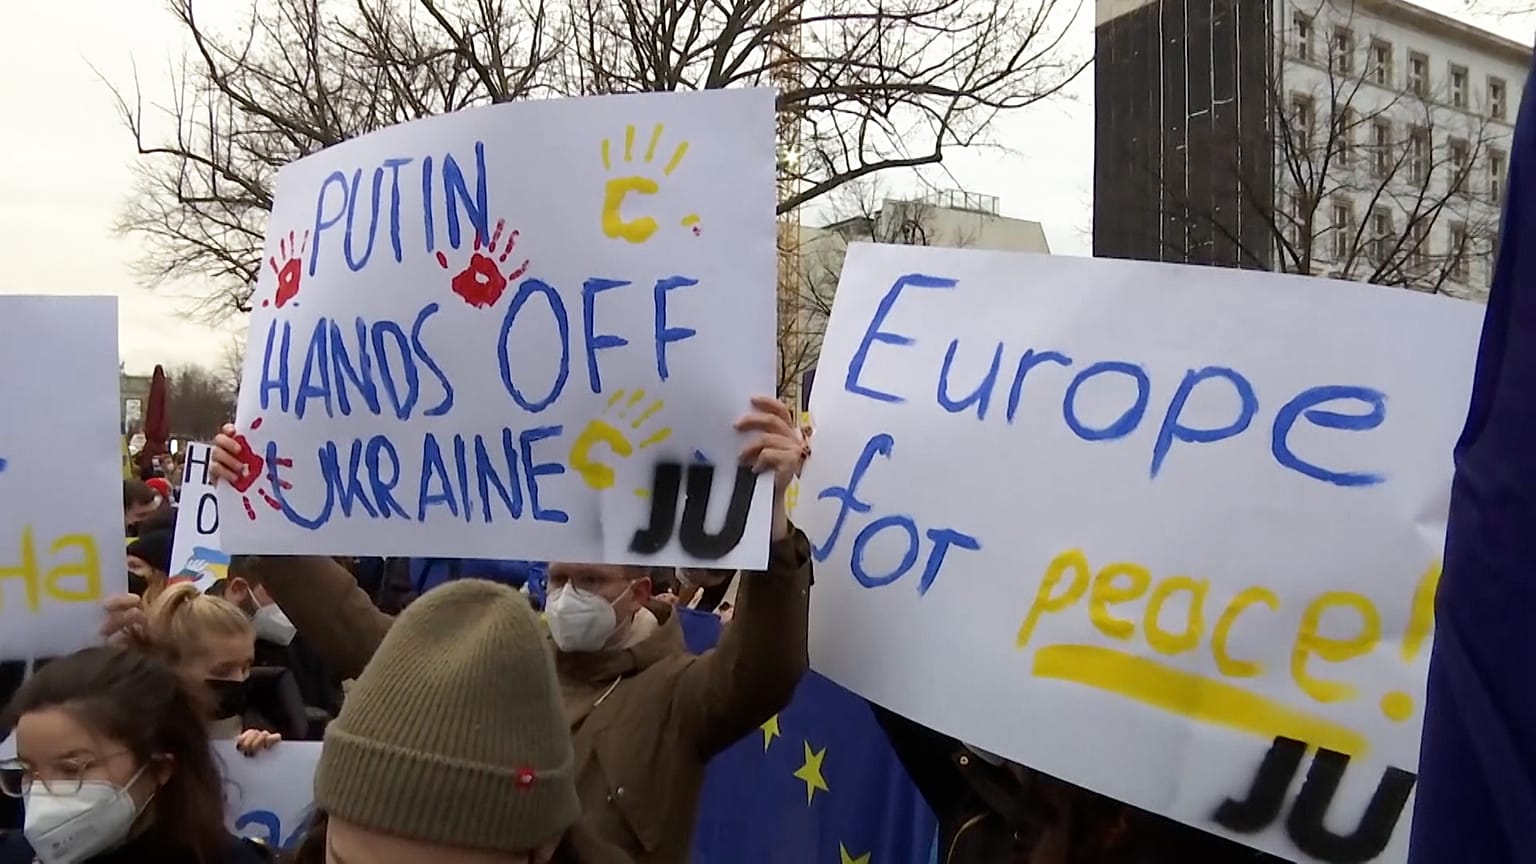 PUTIN
HANDS OFF
UKRAINE
JU
Europe
for
peace!
JU
H
O
Ha